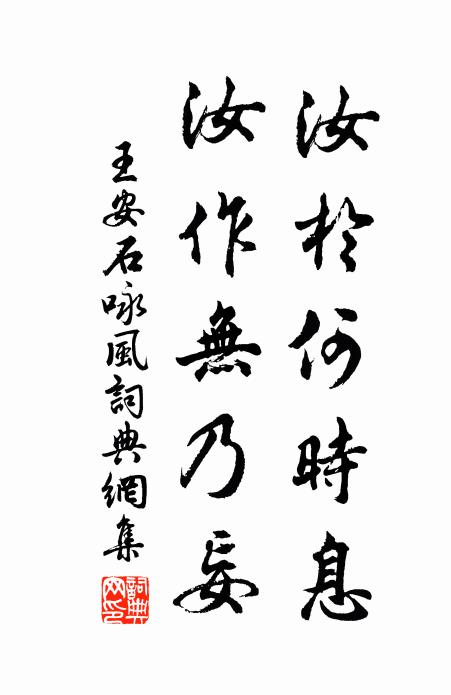 汝於何時息
汝作無乃妄
王安石咏風詞典網集
詞典
网印